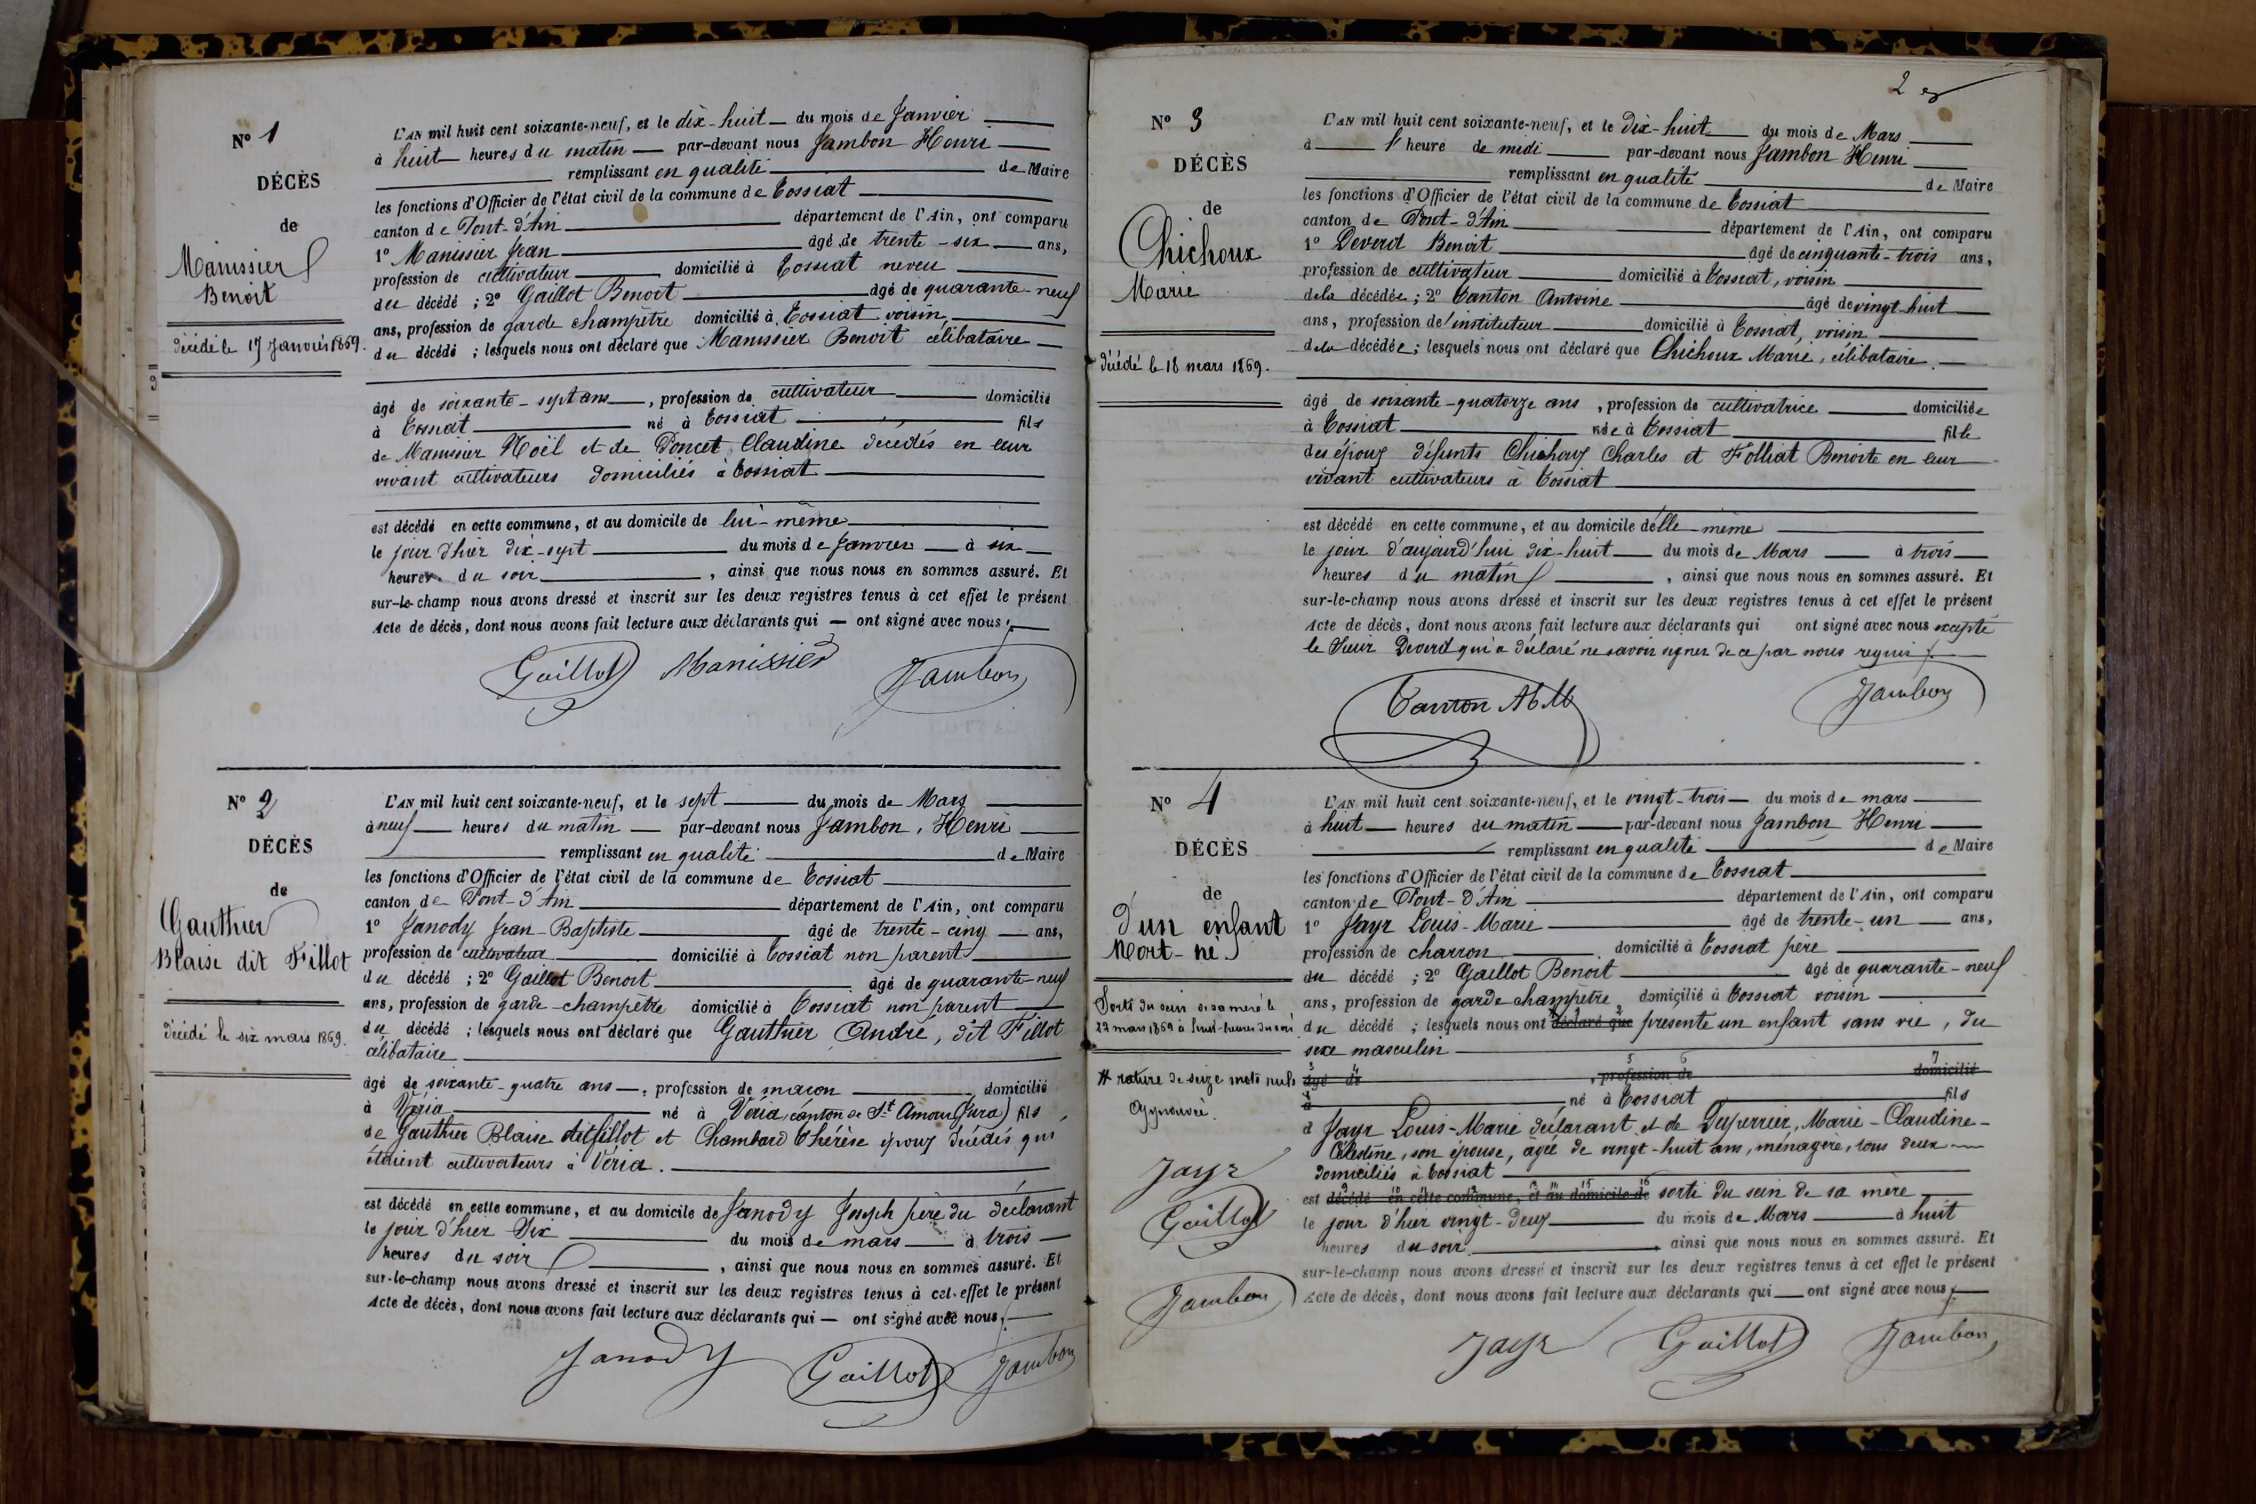 N° 1
DÉCÈS
de
Manissier
Benoît
décédé le 17 Janvier 1869.
L'AN mil huit cent soixante-neuf, et le dix-huit du mois de Janvier
à huit heures du matin par-devant nous Jambon Henri
remplissant en qualité de Maire
les fonctions d'Officier de l'état civil de la commune de Tossiat
canton de Pont-d'Ain département de l'Ain, ont comparu
1° Manissier Jean âgé de trente-six ans,
profession de cultivateur domicilié à Tossiat neveu
du décédé ; 2° Gaillot Benoit âgé de quarante-neuf
ans, profession de garde champêtre domicilié à Tossiat voisin
du décédé ; lesquels nous ont déclaré que Manissier Benoit célibataire
âgé de soixante-sept ans, profession de cultivateur domicilié
à Tossiat né à Tossiat fils
de Manissier Noël et de Poncet Claudine décédés en leur
vivant cultivateurs domiciliés à Tossiat
est décédé en cette commune, et au domicile de lui-même
le jour d'hier dix-sept du mois de Janvier à six
heures du soir, ainsi que nous nous en sommes assuré. Et
sur-le-champ nous avons dressé et inscrit sur les deux registres tenus à cet effet le présent
Acte de décès, dont nous avons fait lecture aux déclarants qui ont signé avec nous.
Gaillot Manissier Jambon
N° 2
DÉCÈS
de
Gauthier
Blaise dit Fillot
décédé le six mars 1869.
L'AN mil huit cent soixante-neuf, et le sept du mois de Mars
à neuf heures du matin par-devant nous Jambon, Henri
remplissant en qualité de Maire
les fonctions d'Officier de l'état civil de la commune de Tossiat
canton de Pont-d'Ain département de l'Ain, ont comparu
1° Janody Jean-Baptiste âgé de trente-cinq ans,
profession de cultivateur domicilié à Tossiat non parent
du décédé ; 2° Gaillot Benoit âgé de quarante-neuf
ans, profession de garde-champêtre domicilié à Tossiat non parent
du décédé ; lesquels nous ont déclaré que Gauthier André, dit Fillot
célibataire
âgé de soixante-quatre ans, profession de maçon domicilié
à Véria né à Véria, canton de St Amour (Jura) fils
de Gauthier Blaise dit fillot et Chambard Thérèse époux décédés qui
étaient cultivateurs à Véria.
est décédé en cette commune, et au domicile de Janody Joseph père du déclarant
le jour d'hier Six du mois de mars à trois
heures du soir, ainsi que nous nous en sommes assuré. Et
sur-le-champ nous avons dressé et inscrit sur les deux registres tenus à cet effet le présent
Acte de décès, dont nous avons fait lecture aux déclarants qui ont signé avec nous.
Janody Gaillot Jambon
2
N° 3
DÉCÈS
de
Chichoux
Marie
décédé le 18 mars 1869.
L'AN mil huit cent soixante-neuf, et le dix-huit du mois de Mars
à l'heure de midi par-devant nous Jambon Henri
remplissant en qualité de Maire
les fonctions d'Officier de l'état civil de la commune de Tossiat
canton de Pont-d'Ain département de l'Ain, ont comparu
1° Deverd Benoit âgé de cinquante-trois ans,
profession de cultivateur domicilié à Tossiat, voisin
de la décédée ; 2° Tanton Antoine âgé de vingt-huit
ans, profession d'instituteur domicilié à Tossiat, voisin
de la décédée ; lesquels nous ont déclaré que Chichoux Marie, célibataire.
âgé de soixante-quatorze ans, profession de cultivatrice domiciliée
à Tossiat née à Tossiat fille
des époux défunts Chichoux Charles et Folliat Benoite en leur
vivant cultivateurs à Tossiat
est décédé en cette commune, et au domicile d'elle-même
le jour d'aujourd'hui dix-huit du mois de Mars à trois
heures du matin, ainsi que nous nous en sommes assuré. Et
sur-le-champ nous avons dressé et inscrit sur les deux registres tenus à cet effet le présent
Acte de décès, dont nous avons fait lecture aux déclarants qui ont signé avec nous excepté
le Sieur Deverd qui a déclaré ne savoir signer de ce par nous requis.
Tanton Jambon
N° 4
DÉCÈS
de
d'un enfant
Mort-né.
Sorti du sein de sa mère le
22 mars 1869 à huit heures du soir
# rature de seize mots nuls
Approuvée.
Jayr
Gaillot
Jambon
L'AN mil huit cent soixante-neuf, et le vingt-trois du mois de mars
à huit heures du matin par-devant nous Jambon Henri
remplissant en qualité de Maire
les fonctions d'Officier de l'état civil de la commune de Tossiat
canton de Pont-d'Ain département de l'Ain, ont comparu
1° Jayr Louis-Marie âgé de trente-un ans,
profession de charron domicilié à Tossiat père
du décédé ; 2° Gaillot Benoit âgé de quarante-neuf
ans, profession de garde champêtre domicilié à Tossiat voisin
du décédé ; lesquels nous ont déclaré que présenté un enfant sans vie, du
sexe masculin
âgé de, profession de domicilié
à né à Tossiat fils
d Jayr Louis-Marie déclarant et de Duperrier, Marie-Claudine-
Célestine, son épouse, âgée de vingt-huit ans, ménagère, tous deux
domiciliés à Tossiat
est décédé en cette commune, et au domicile de sorti du sein de sa mère
le jour d'hier vingt-deux du mois de Mars à huit
heures du soir, ainsi que nous nous en sommes assuré. Et
sur-le-champ nous avons dressé et inscrit sur les deux registres tenus à cet effet le présent
Acte de décès, dont nous avons fait lecture aux déclarants qui ont signé avec nous.
Jayr Gaillot Jambon